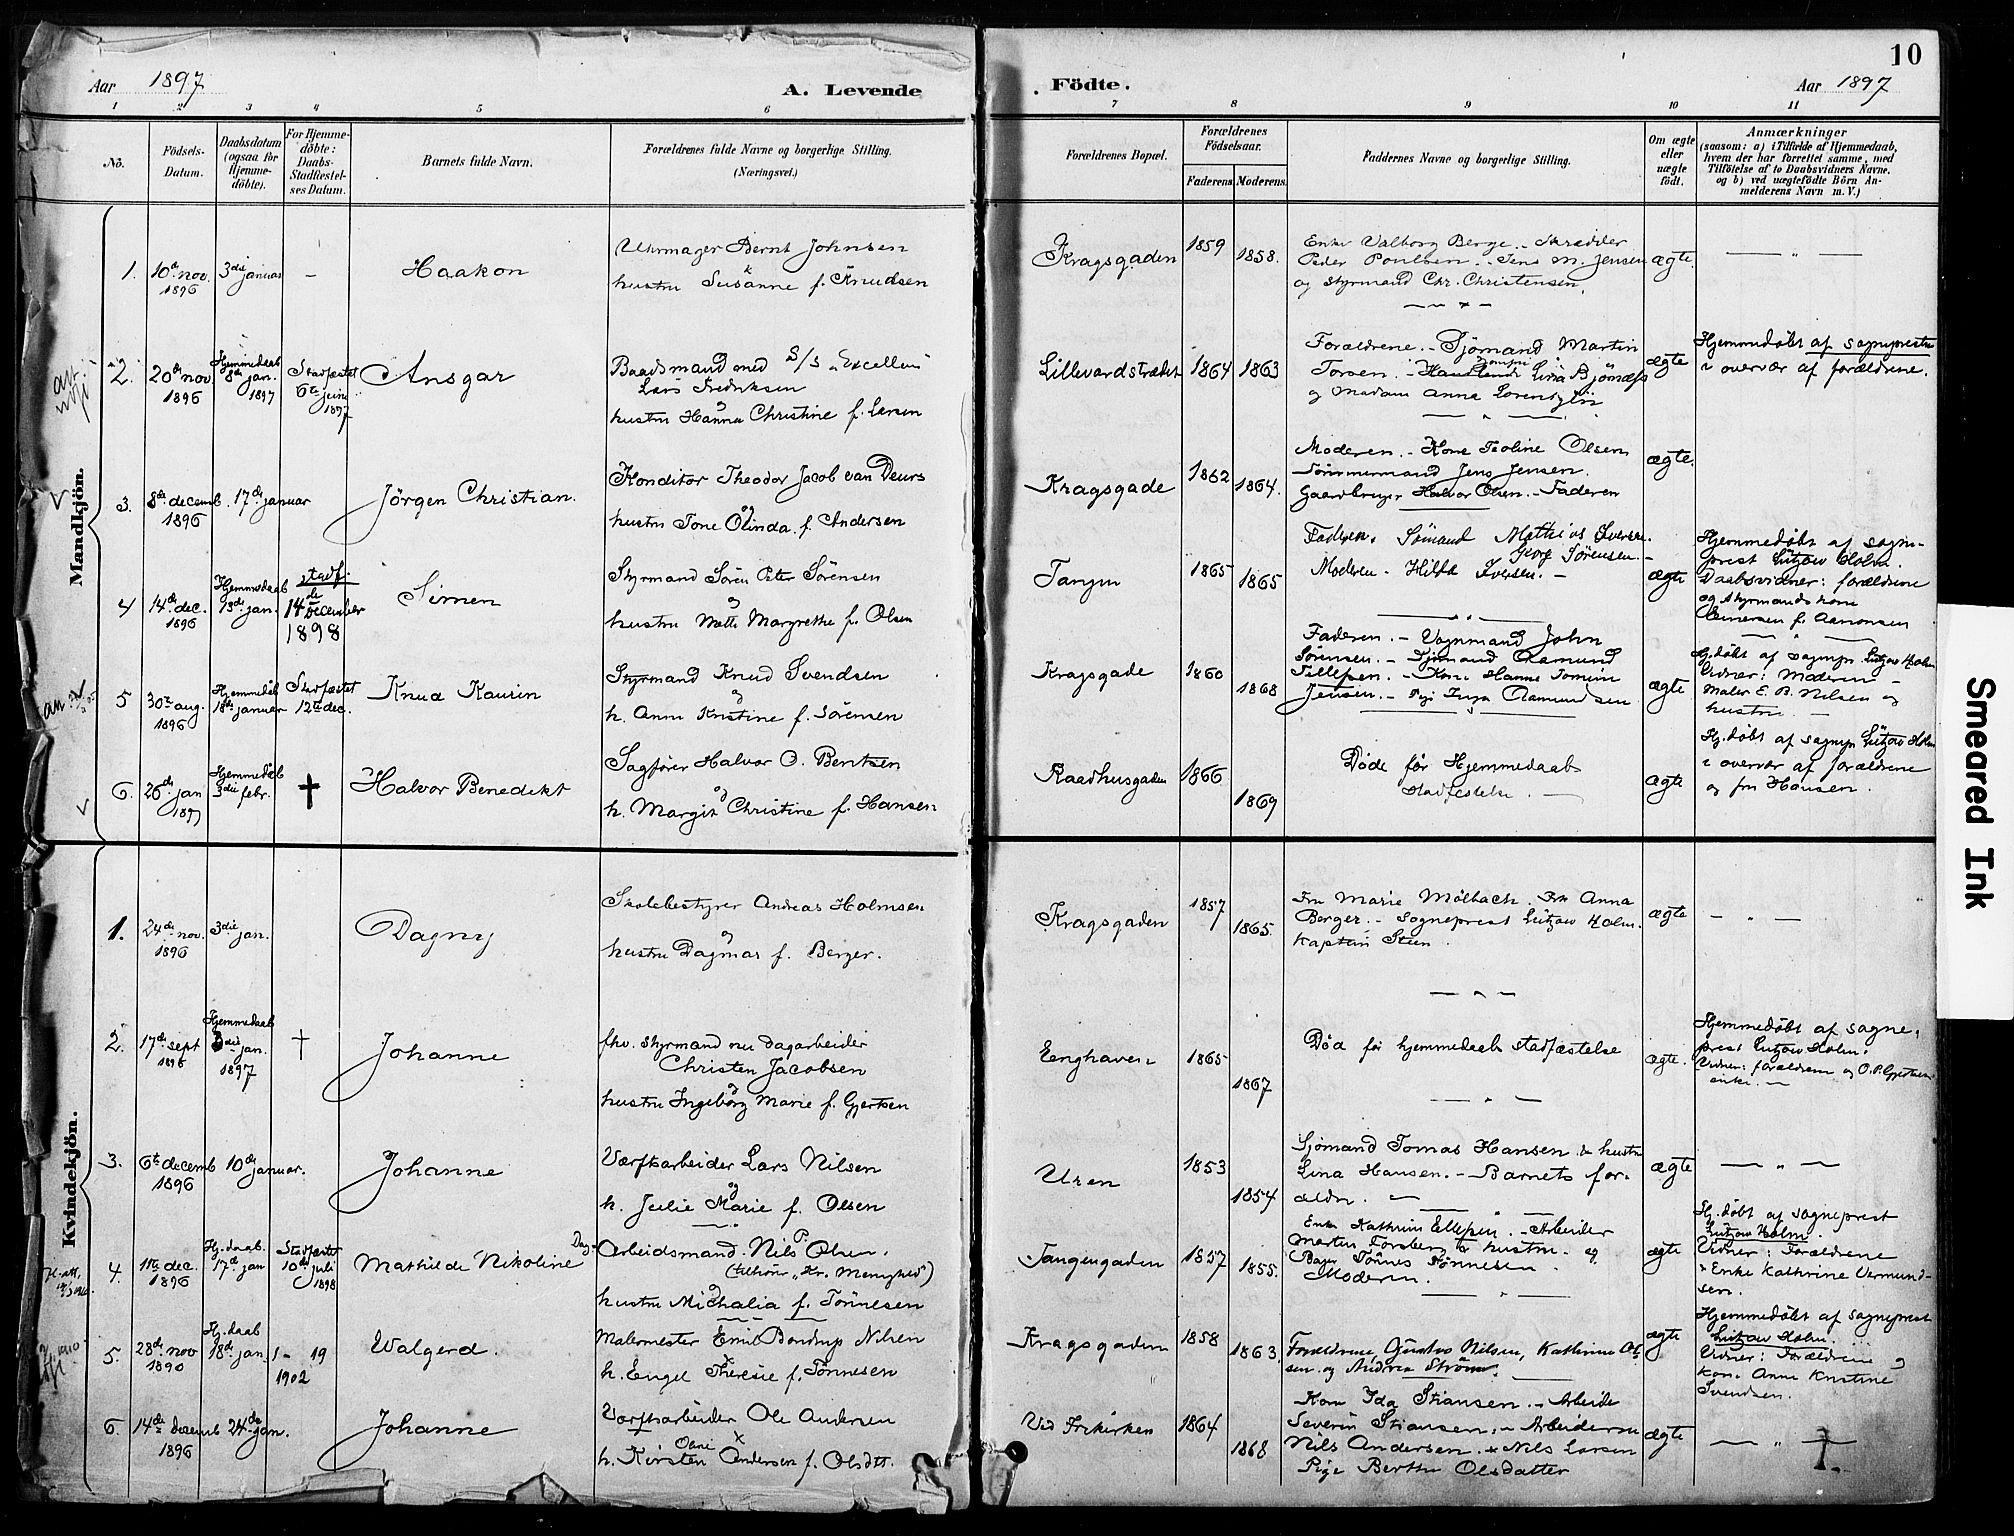 10
Aar 1897
A. Levende Födte.
Aar 1897
1 2 3 4 5 6 7 8 9 10 11
No.
Födsels-
Datum.
Daabsdatum
(ogsaa for
Hjemme-
döbte).
For Hjemme-
döbte:
Daabs-
Stadfæstel-
ses Datum.
Barnets fulde Navn.
Forældrenes fulde Navne og borgerlige Stilling.
(Næringsvei.)
Forældrenes Bopæl.
Forældrenes
Födselsaar.
Faderens. Moderens.
Faddernes Navne og borgerlige Stilling.
Om ægte
eller
uægte
födt.
Anmærkninger
(saasom: a) i Tilfælde af Hjemmedaab,
hvem der har forrettet samme, med
Tilföielse af to Daabsvidners Navne.
og b) ved uægtefödte Börn An-
melderens Navn m. V.)
Mandkjön.
1.
10de nov.
1896
3die januar
–
Haakon
Uhrmager Bernt Johnsen
hustru Susanne f. Knudsen
Kragsgaden
1859
1858.
Enke Valborg Berge. - Skrædder
Peder Poulsen. - Jens M. Jensen
og styrmand Chr. Christensen.
ægte.
2.
20de nov
1896
Hjemmedaab
8de jan.
1897
Stadfæstet
6te juni
1897
Ansgar
Baadsmand med S/S "Excellens
Lars Fredriksen
og
hustru Hanna Christine f. Larsen
Lillevardstrædet
1864
1863
Forældrene. - Sjömand Martin
Torven. - Lina Björnæs
og madam Anna Lorensen
ægte
Hjemmedöbt af sogneprestn
i overvær af forældrene.
3.
8de decemb.
1896
17de januar
Jörgen Christian.
Konditor Theodor Jacob van Deurs
og
hustru Tone Olinda f. Andersen
Kragsgade
1862
1864.
Moderen. - Kone Teoline Olsen
Tömmermand Jens Jensen.
Gaardbruger Halvor Olsen. - Faderen
ægte.
4
14de dec.
1896
Hjemmedaab
13de jan.
stadf.
14de December
1898
Simen
Styrmand Sören Peter Sörensen
og
hustru Mette Margrethe f. Olsen
Tangen
1865
1865
Faderen. Sömand Mathias Iversen.
Georg Sörensen -
Moderen - Hilda Iversen. -
ægte
Hjemmedöbt af sogne-
prest Lützow Holm.
Daabsvidner: forældrene
og styrmandskone
Einersen f. Aanonsen
5
30te aug.
1896
Hjemmedöb
18de januar
Stadfæstet
12te dec.
Knud Kaurin
Styrmand Knud Svendsen
og
h. Anne Kristine f. Sörensen
Kragsgade
1860
1868
Faderen. - Vognmand John
Sörensen. - Sjömand Aamund
Tellefsen. - Kone Hanne Tomine
Jensen. - Pige Inga Aamundsen
ægte.
Hj. döbt af sognepr. Lützow Holm
Vidner: Moderen -
Maler E. B. Nilsen og
hustru. -
6.
26de jan
1897
Hjemmedöb
3die febr.
✝
Halvor Benedikt
Sagförer Halvor O. Bentsen
og
h. Margit Christine f. Hansen
Raadhusgaden
1866
1869
Döde för Hjemmedaabs
stadfestelse. -
ægte
Hj. döbt af sognepr. Lützow Holm
i overvær af forældrene
og fru Hansen.
Kvindekjön.
1.
24de nov.
1896
3die jan.
Dagny
Skolebestyrer Andreas Holmsen
og
hustru Dagmar f. Berger.
Kragsgaden
1857
1865.
Fru Marie Mölbach. Frk Anna
Berger. - Sogneprest Lützow Holm.
Kaptein Steen.
ægte
2.
17de sept
1896
Hjemmedaab
3die jan.
1897
†
Johanne
fhv. styrmand nu dagarbeider
Christen Jacobsen
og
hustru Ingeborg Marie f. Gjertsen
Enghaven
1865
1867
Död för hjemmedaabs stadfæstelse
ægte.
Hjemmedöbt af sogne-
prest Lützow Holm.
Vidner: forældrene og O. P. Gjertsens
enke. -
3.
6te decemb
1896
10de januar.
Johanne
Værftsarbeider Lars Nilsen
og
h. Julie Marie f. Olsen
Uren
1853
1854
Sjömand Tomas Hansen & hustru
Lina Hansen. - Barnets for-
ældre.
ægte
4.
11te dec.
1896
Hj. daab.
17de jan
Stadfæstet
10de juli
1898
Mathilde Nikoline Dag-
Arbeidsmand. Nils P. Olsen.
(tilhörer "Kr. Menighed")
og
hustru Michalia f. Tönnesen
Tangengaden
1857
1855.
Enke Kathrine Ellefsen. - Arbeider
Marten Forsberg & hustru. og
Tönnes Tönnesen.
Moderen.
ægte
Hj. döbt af sogneprest
Lützow Holm.
Vidner: Forældrene
& Enke Kathrine Vermund-
sen.
5.
28de nov
1890
Hj. daab
18de jan.
1 - 19
1902
Valgerd.
Malermester Emil Bordrup Nilsen
h. Engel Theresie f. Tönnesen
Kragsgaden
1858
1863.
Forældrene, Gustav Nilsen, Kathrine Ol-
sen og Andrea Ström.
ægte
Hjemmedöbt af sogneprest
Lützow Holm.
Vidner: Forældrene og
Kone Anne Kristine
Svendsen.
6.
14de decemb
1896
24de jan.
Johanne
Værftsarbeider Ole Andersen
h. Kirsten Andersen f. Olsdtt.
Ved Frikirken
1864
1868
Kone Ida Stiansen. - Arbeider
Severin Stiansen. - Arbeiderne
Nils Andersen. & Nils Larsen
Pige Berthe Olsdatter
ægte
Smeared Ink